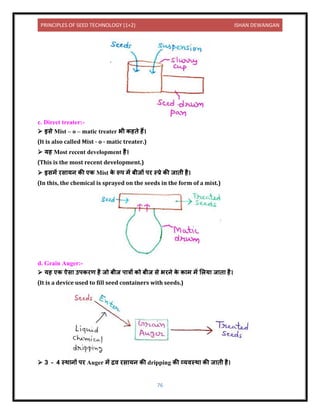 PRINCIPLES OF SEED TECHNOLOGY (1+2) ISHAN DEWANGAN
Seeds suspension
slurry
cup
Seed drum
pan
c. Direct treater:-
➢ इसे Mist – o – matic treater भी कहते हैं।
(It is also called Mist - o - matic treater.)
➢ यह Most recent development है।
(This is the most recent development.)
➢ इसमें रसायन की एक Mist के रूप में बीजों पर स्प्रे की जाती है।
(In this, the chemical is sprayed on the seeds in the form of a mist.)
Seed Treated
Seeds
Matic
drum
d. Grain Auger:-
➢ यह एक ऐसा उपकरण है जो बीज पात्रों को बीज से भरने के काम में लिया जाता है।
(It is a device used to fill seed containers with seeds.)
Seeds
Enter
Liquid
Chemical
dripping
Grain
Auger
Treated
Seeds
➢ 3 - 4 स्थानों पर Auger में द्रव रसायन की dripping की व्यवस्था की जाती है।
76